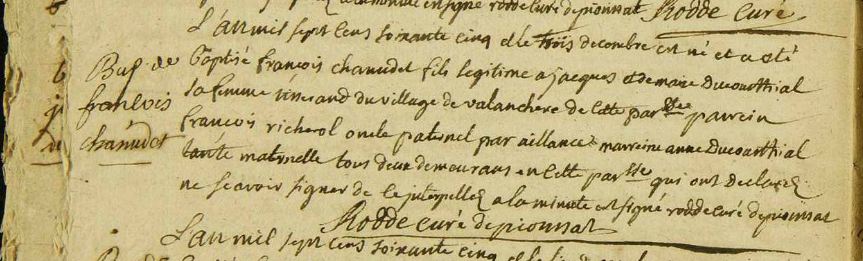 a la minute est signé rodde curé de pionnat Rodde curé
L'an mil sept cens soixante cinq et le trois decembre est né et a eté
Bap. de
françois
chanudet
baptisé françois chanudet fils legitime a jacques et de marie Ducourthial
sa femme du village de valanchere de cette parsse parrein
francois richerol oncle paternel par aillance marreine anne Ducourthial
tante maternelle tous deux demeurans en cette parsse qui ont declaré
ne scavoir signer de ce interpellés a la minute est signé rodde curé de pionnat
Rodde curé de pionnat
L'an mil sept cens soixante cinq et le